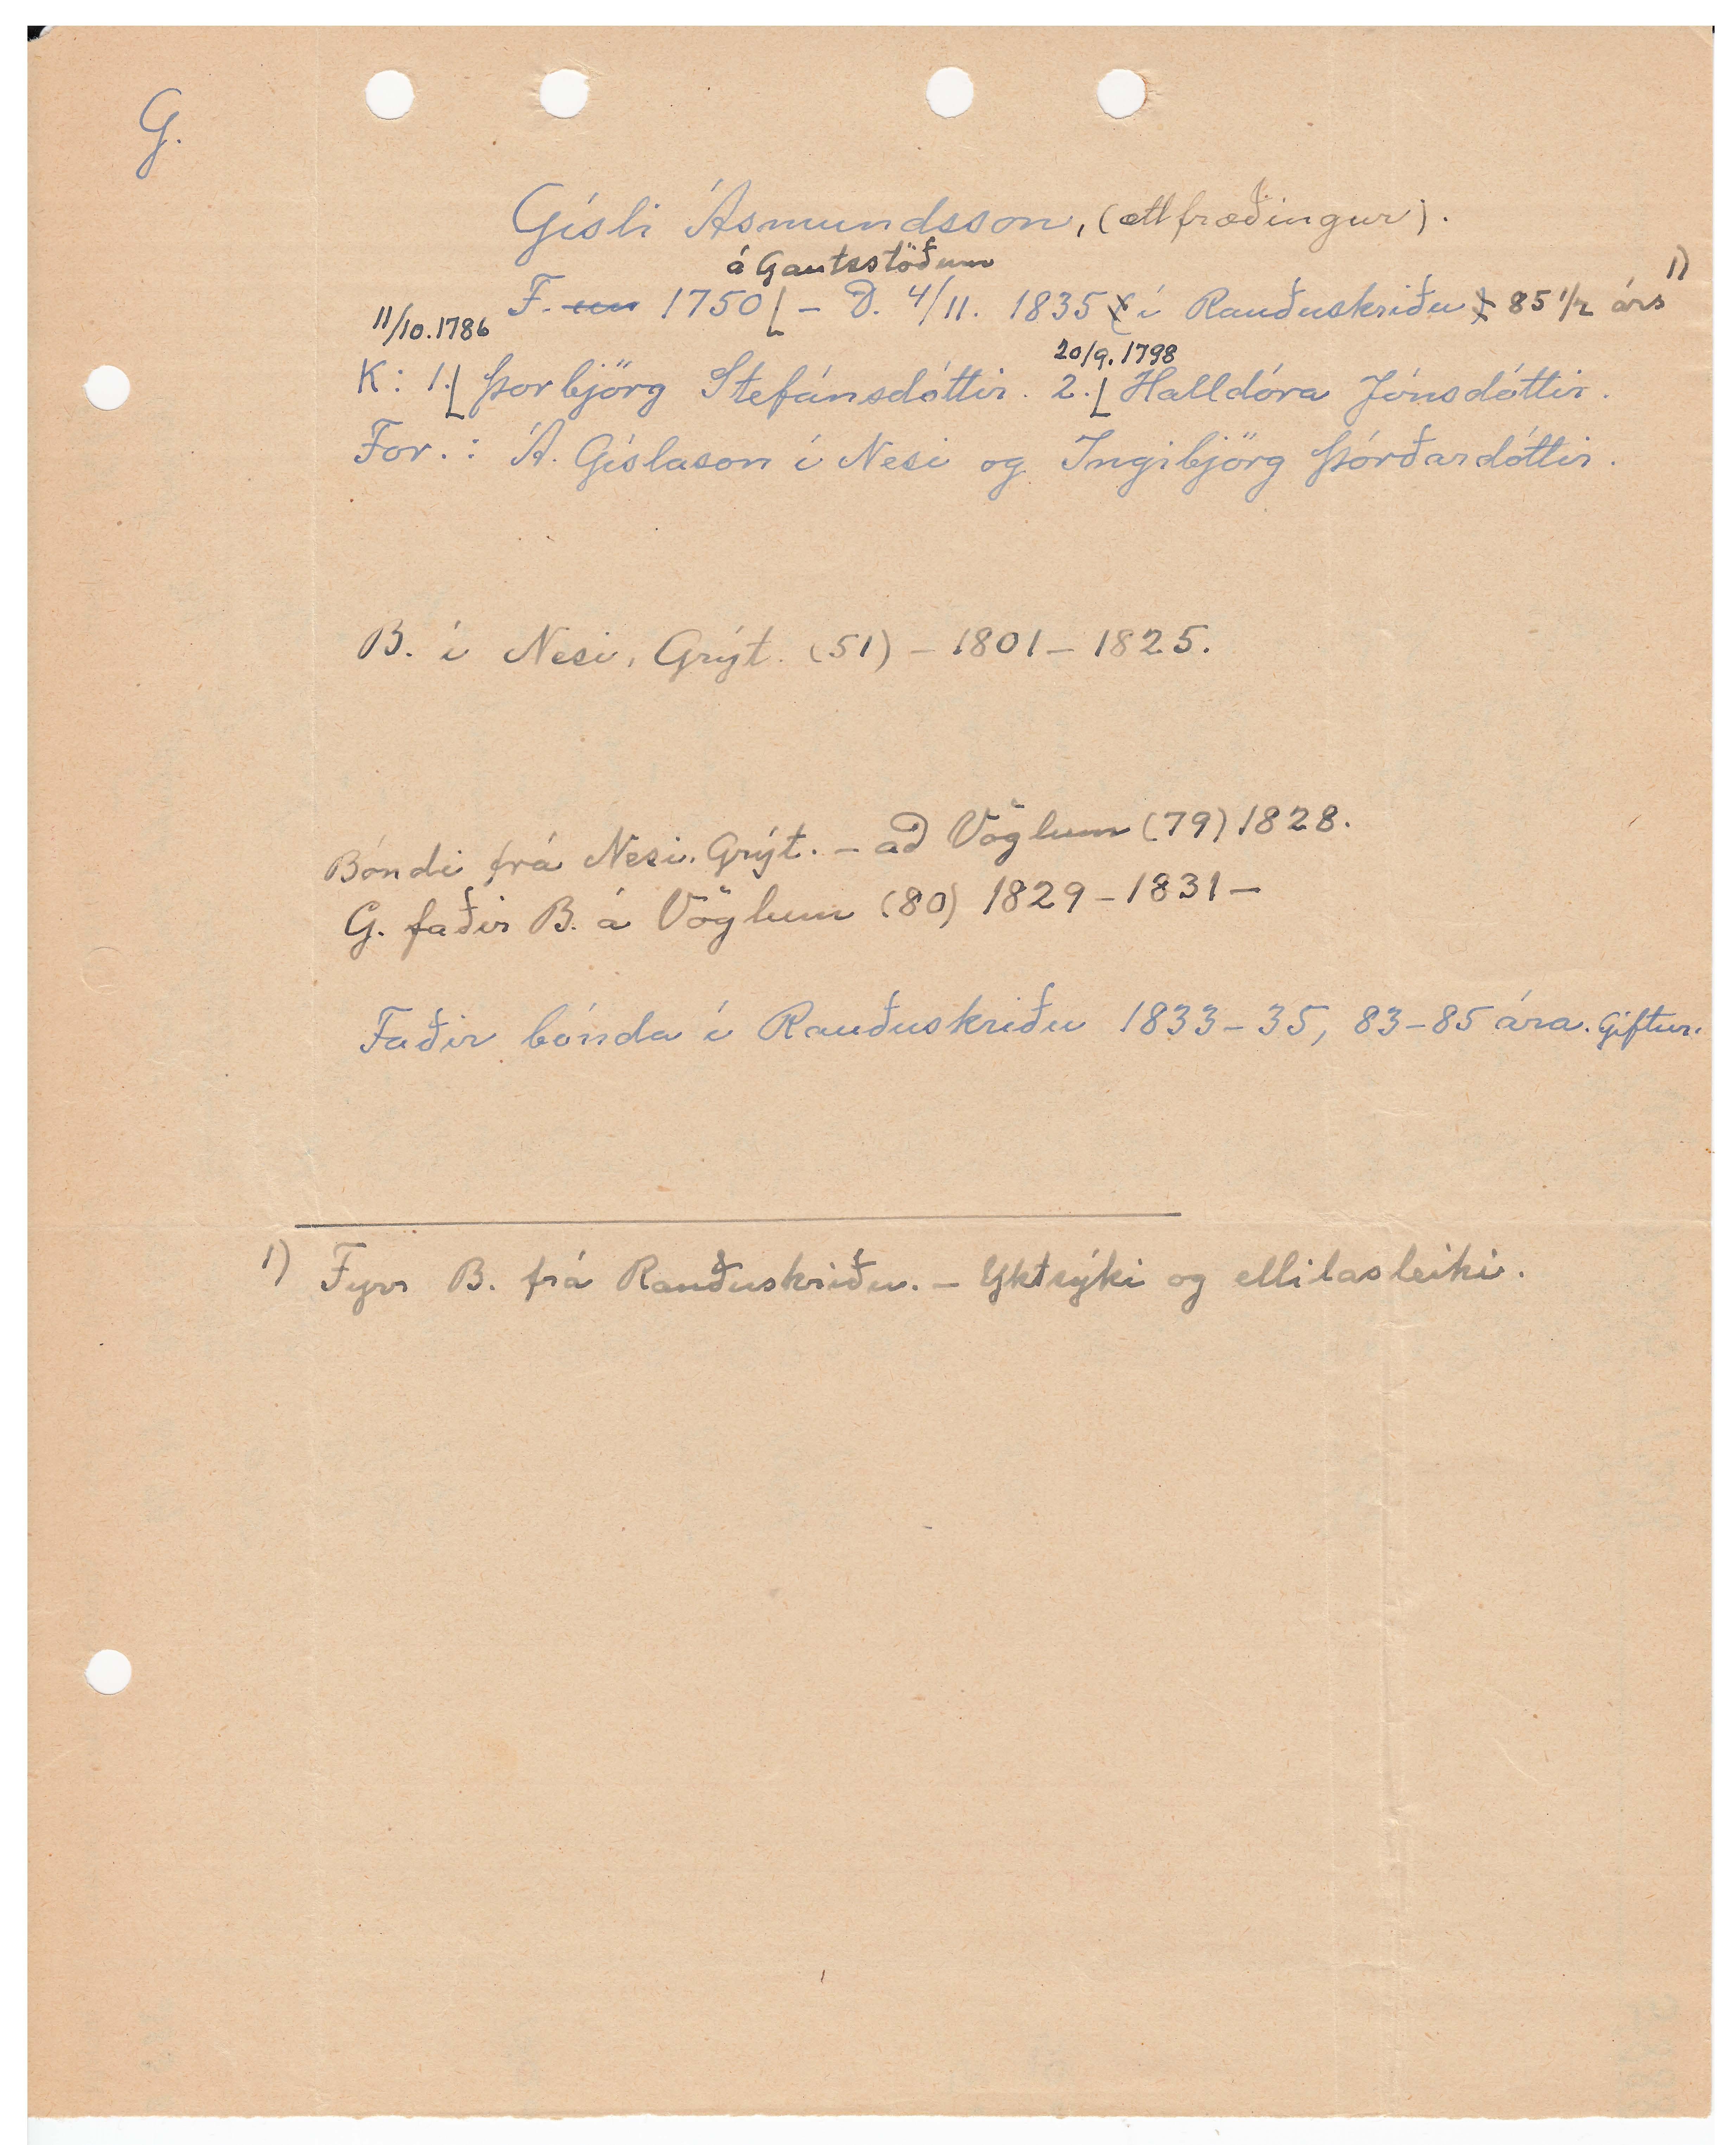 G.
Gísli Ásmundsson, (ættfræðingur).
á Gautsstöðum
F. um 1750 – D. 4/11. 1835 í Rauðuskriðu 85 1/2 árs 1)
11/10.1786 20/9.1798
K: 1. Þorbjörg Stefánsdóttir. 2. Halldóra Jónsdóttir.
For.: Á. Gíslason í Nesi og Ingibjörg Þórðardóttir.
B. í Nesi, Grýt. (51) – 1801 – 1825.
Bóndi frá Nesi, Grýt. – að Vöglum (79) 1828.
G. faðir B. á Vöglum (80) 1829 – 1831 –
Faðir bónda í Rauðuskriðu 1833–35, 83–85 ára. Giftur.
1) Fyrr B. frá Rauðuskriðu. – Yktsýki og ellilasleiki.